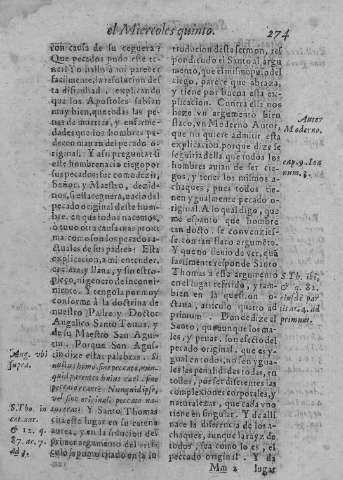 el Miercoles quinto. 274
con causa de su ceguera?
Que pecados pudo este te-
ner? yo hallo a mi parecer
facilmente, la resolucion des
ta dificultad, explicando
que los Apostoles sabian
muy bien, que todas las pe-
nas de muertes, y enferme-
dades que los hombres pa-
decemos manan del pecado o-
riginal. Y assi preguntar si
este hombre nacio ciego por
sus pecados: fue como dezir,
Señor, y Maestro, dezid-
nos, si esta ceguera, nacio del
pecado original deste hom-
bre, en que todos nacemos,
ò tuuo otra causa de peca-
dos propios, ò actua-
les de sus padres? Esta
explicacion, a mi entender,
es clara, y llana, y sin estro-
pieço, ni genero de inconue-
niente. Y tengola por muy
conforme à la doctrina de
nuestro Padre y Doctor
Angelico Santo Tomas, y
de su Maestro San Agu-
stin. Porque San Agus-
tin dize estas palabras. Si
nullus homo sine peccato, nun-
quid parentes huius caeci sine
peccato erant. Nunquid ipse,
vel sine originali peccato na-
Y Santo Thomas
cita este lugar en su catena
aurea, y en la solucion del
primer argumento del arti-
culo
Aug. vbi
supra.
S. Tho. in
cat. aur.
& 12. q.
87. ar. 7.
ad 1.
troducion deste sermon, res
pondiendo el Santo al argu
mento, que el mismo pu-
so del
ciego, parece que abraza,
y tiene por buena esta ex-
plicacion. Contra ella nos
hizo vn argumento bien
flaco, vn Moderno Autor,
que no quiere admitir esta
explicacion, porque dize se
seguiria della que todos los
hombres auian de ser cie-
gos, y tener los mismos a-
chaques, pues todos tie-
nen ygualmente pecado o-
riginal. A lo qual digo, que
me espanto que hombre
tan docto, se conuenzies-
se con tan flaco argumẽto.
Y que no uiesse de ver, quã
facilmente responde Santo
Thomas a este argumento
en el lugar referido, y tam-
bien en la question o-
chenta, articulo quatro ad
primum. Donde dize el
Santo, que aunque los ma-
les, y penar, son efecto del
pecado original, que es y-
gual en todos, no son ygua-
les las penalidades todas, en
todos, por ser diferentes las
complexiones corporales, y
naturalezas, que cada vno
tiene en singular. Y de alli
nace la diferencia de los a-
chaques, aunque la rayz de
todos, como lo es, el
pecado original. Y da
Amer
Moderno.
cap. 9. Ioa
num. 3.
S. Tho. ibi,
& q. 82.
eiusdē par
tis ar. 4. ad
primum.
Mm 2 lugar